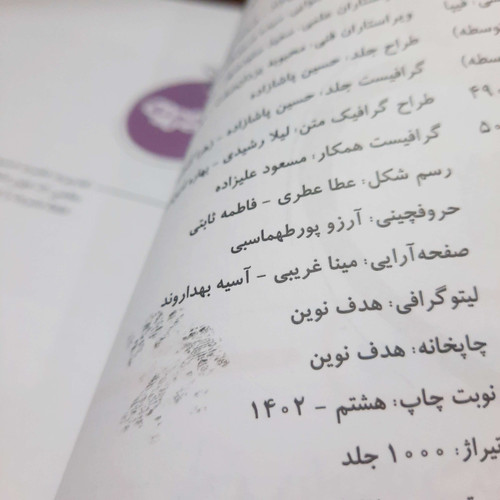 ویراستاران فنی: محبوبه
طراح جلد: حسین پاشازاده
گرافیست جلد: حسین پاشازاده -
طراح گرافیک متن: لیلا رشیدی -
گرافیست همکار: مسعود علیزاده
رسم شکل: عطا عطری - فاطمه ثابتی
حروفچینی: آرزو پورطهماسبی
صفحه‌آرایی: مینا غریبی - آسیه بهداروند
لیتوگرافی: هدف نوین
چاپخانه: هدف نوین
نوبت چاپ: هشتم - ۱۴۰۲
تیراژ: ۱۰۰۰ جلد